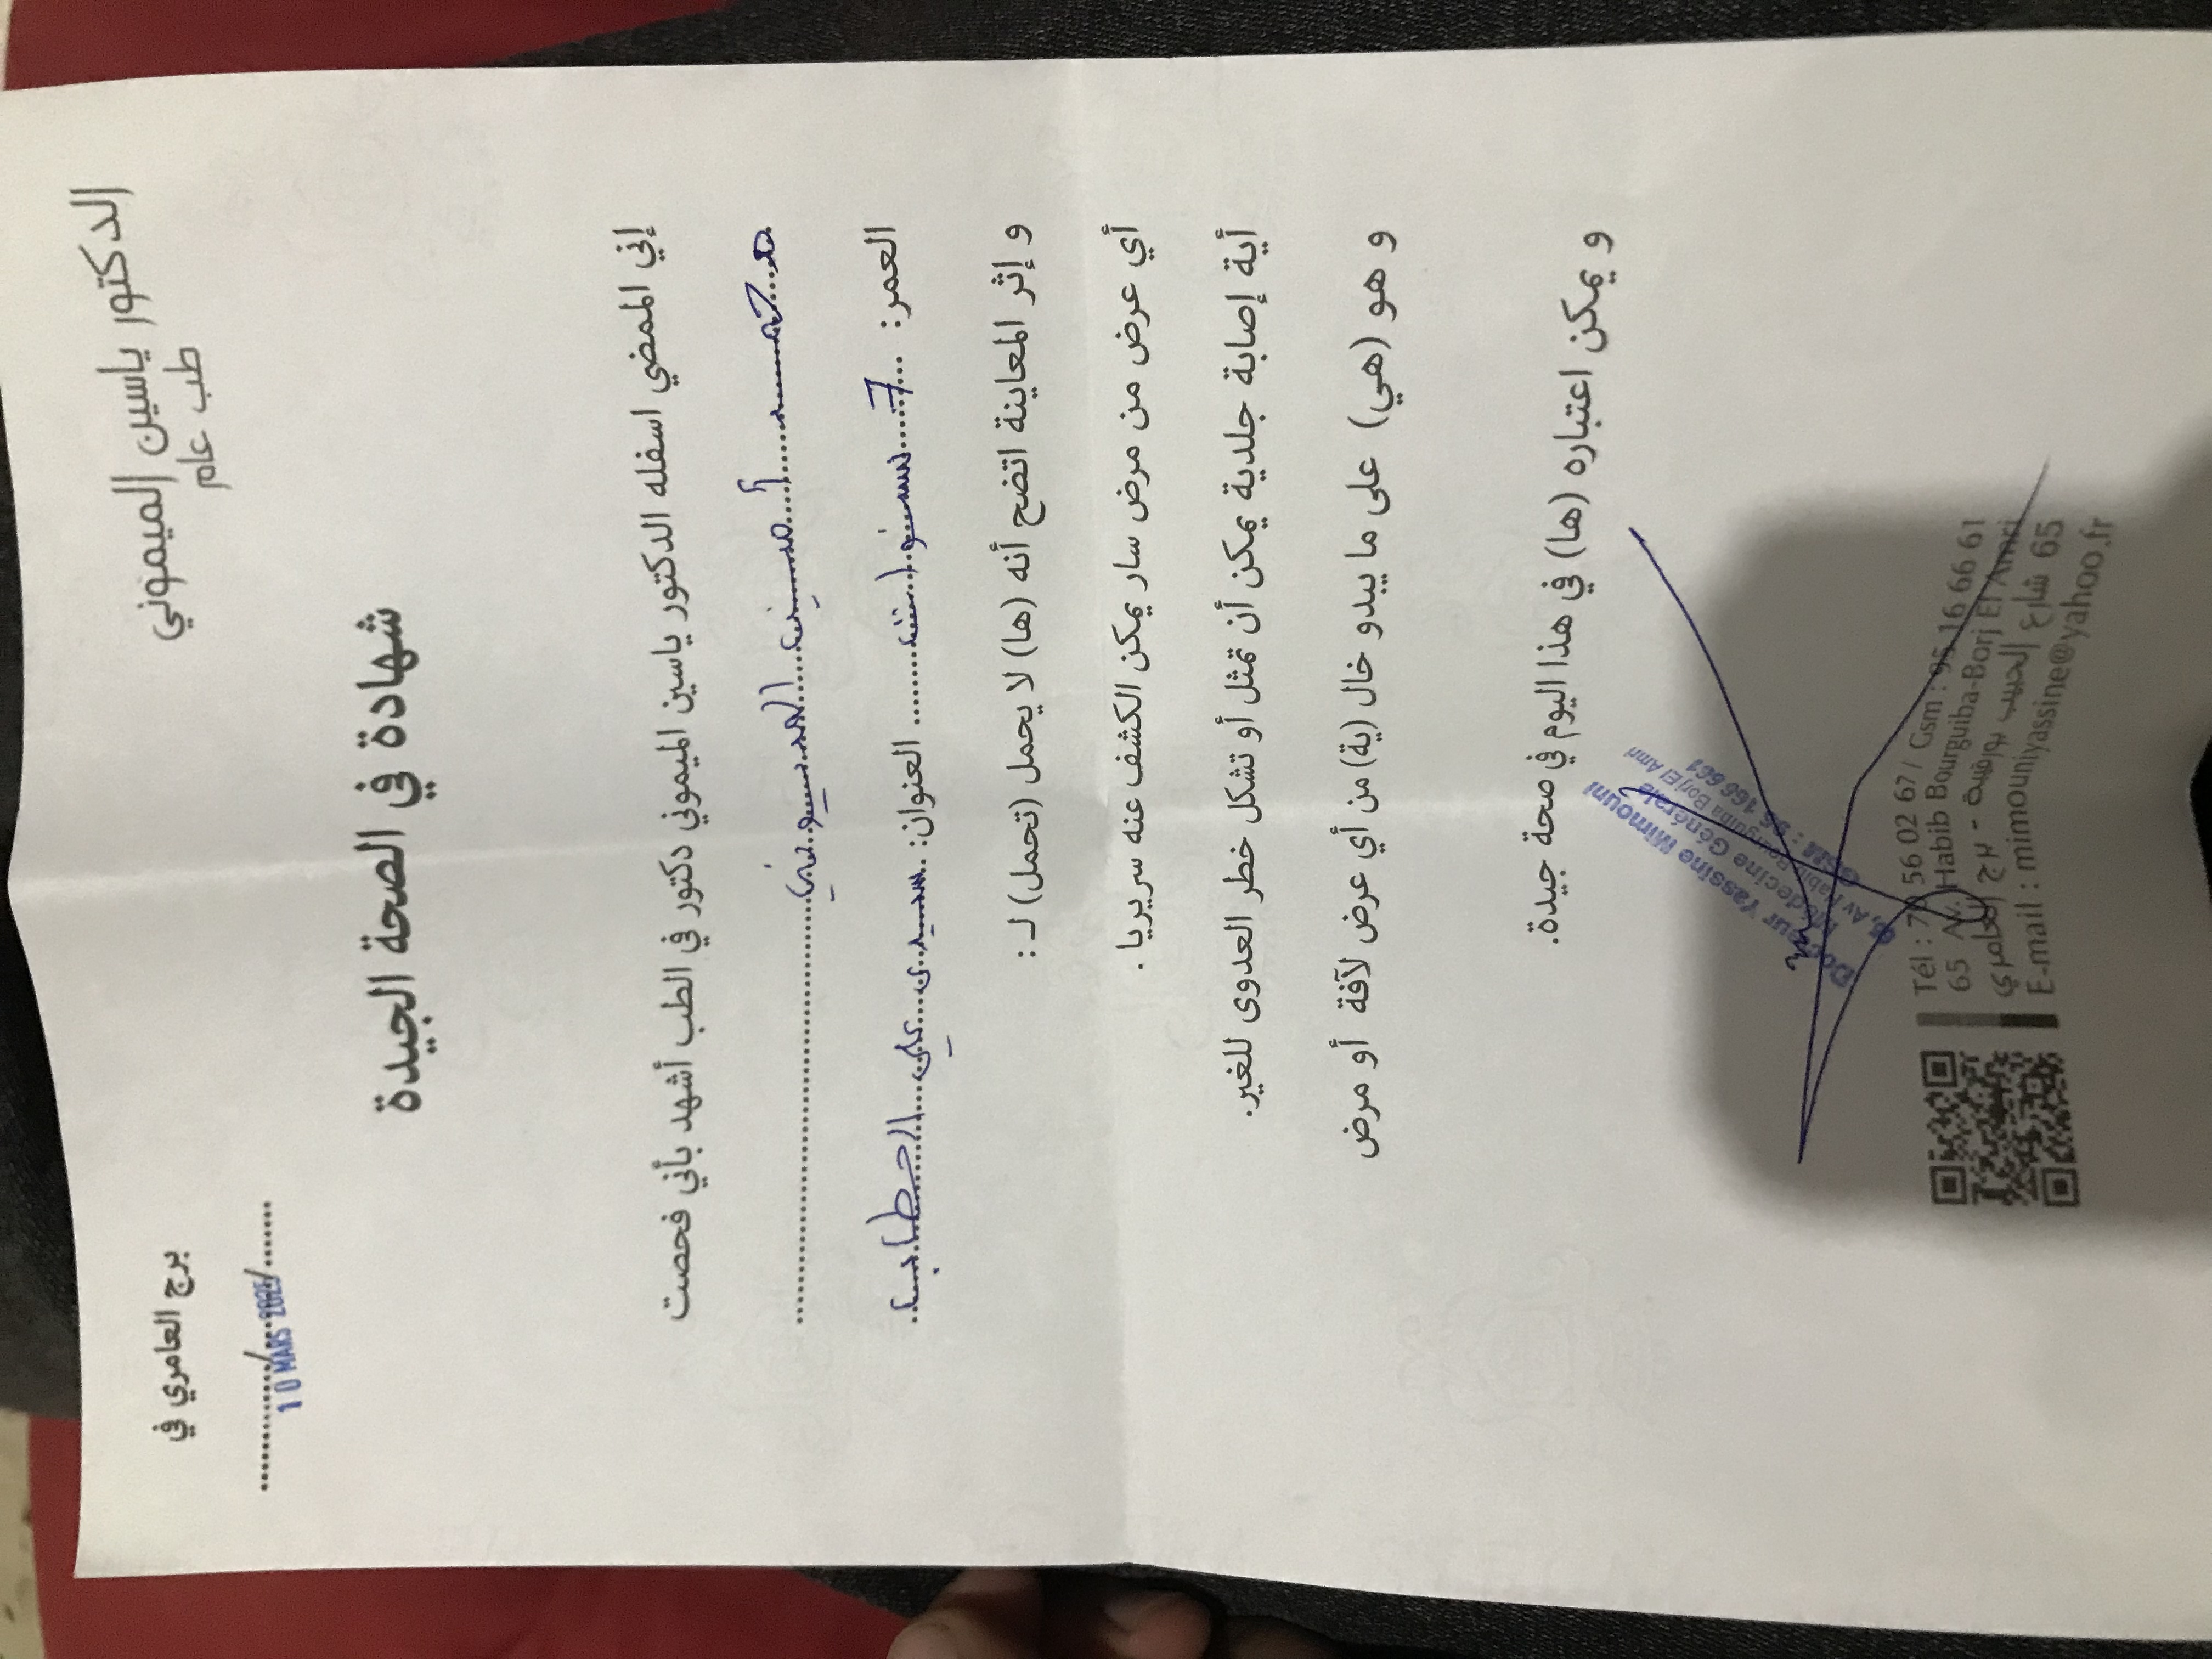 الدكتور ياسين الميموني
طب عام
برج العامري في
...../...../.....
10 MARS 2025
شهادة في الصحة الجيدة
إني الممضي اسفله الدكتور ياسين الميموني دكتور في الطب أشهد بأني فحصت
محمد أمين الميموني
العمر: 7 سنوات العنوان: سيدي علي الحطاب
و إثر المعاينة اتضح أنه (ها) لا يحمل (تحمل) لـ :
أي عرض من مرض سار يمكن الكشف عنه سريريا .
أية إصابة جلدية يمكن أن تمثل أو تشكل خطر العدوى للغير.
و هو (هي) على ما يبدو خال (ية) من أي عرض لآفة أو مرض
و يمكن اعتباره (ها) في هذا اليوم في صحة جيدة.
Docteur Yassine Mimouni
Médecine Générale
65, Av Habib Bourguiba Borj El Amri
GSM : 95 166 661
Tél : 70 56 02 67 / Gsm : 95 16 66 61
65 Av. Habib Bourguiba-Borj El Amri
65 شارع الحبيب بورقيبة - برج العامري
E-mail : mimouniyassine@yahoo.fr